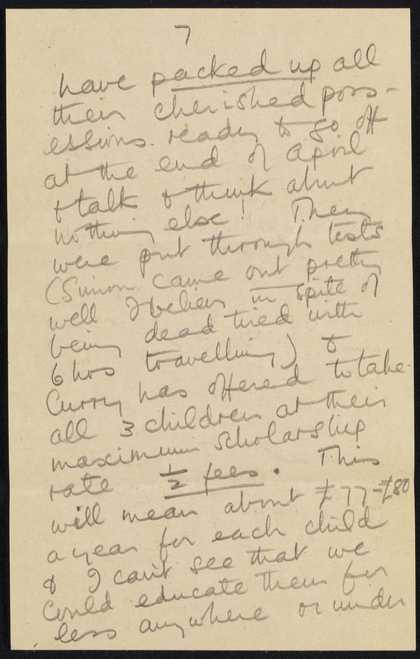 7
have packed up all
their cherished poss-
essions ready to go off
at the end of April
& talk & think about
nothing else! They
were put through tests
(Simon came out pretty
well I believe in spite of
being dead tired with
6 hrs travelling) &
Curry has offered to take
all 3 children at their
maximum scholarship
rate ½ fees. This
will mean about £77-£80
a year for each child
& I can't see that we
could educate them for
less anywhere or under